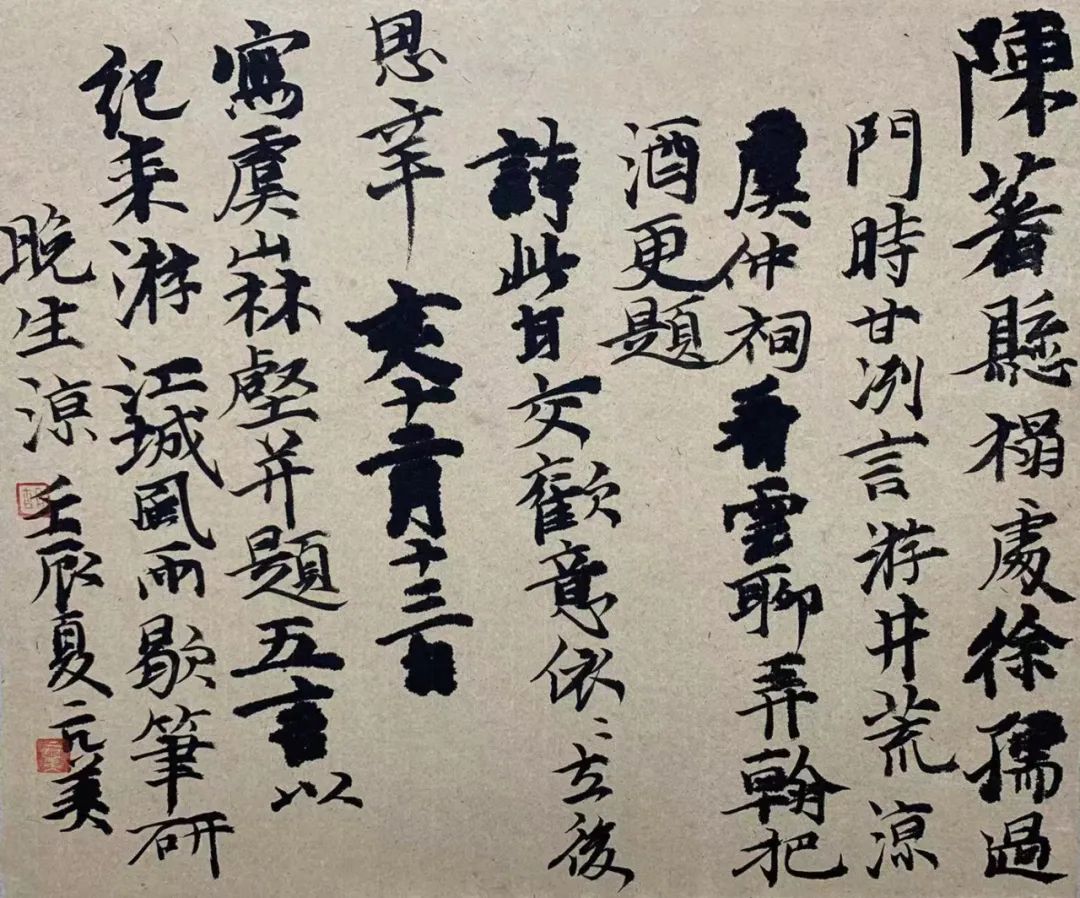 陳蕃懸榻處徐孺過
門時甘冽言游井荒涼
虞仲祠看雲聊弄翰把
酒更題
詩此日交歡意依〻去後
思辛亥十二月十三日
寫虞山林壑并題五言以
紀来游江城風雨歇筆研
晚生涼壬辰夏